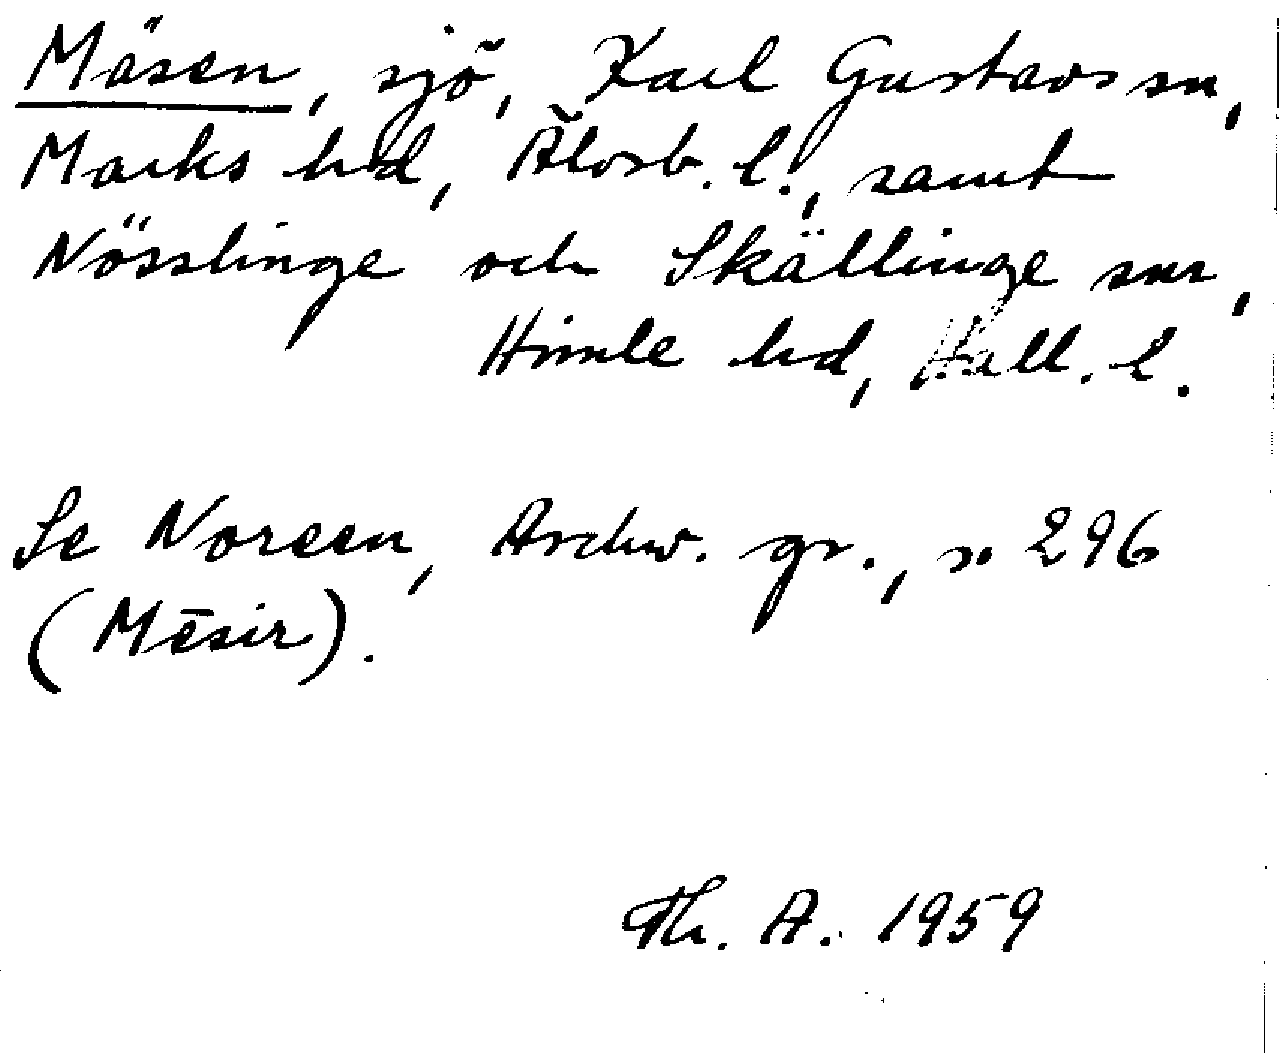 Mäsen, sjö, Karl Gustavs sn,
Marks hd, Älvsb. l., samt
Nösslinge och Skällinge snr,
Himle hd, Hall. l.
Se Noreen, Aschw. gr., s. 296
(Mēsir).
Th. A. 1959